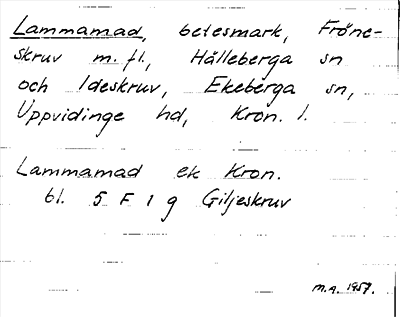 Lammamad, betesmark, Fröne-
skruv m. fl., Hälleberga sn
och Ideskruv, Ekeberga sn,
Uppvidinge hd, Kron. l.
Lammamad ek Kron.
bl. 5 F 1 g Giljeskruv
M.A. 1957.